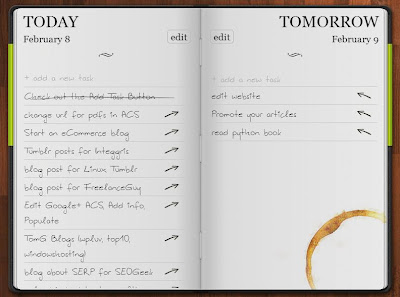 TODAY
February 8
edit
+ add a new task
Check out the Add Task Button
change url for pdfs in ACS
Start an eCommerce blog
Tumblr posts for Integgris
blog post for Linux Tumblr
blog post for FreelanceGuy
Edit Google+ ACS, Add info,
Populate
TomG Blogs (wpluv, top10,
windowshosting)
blog about SERP for SEOGeek
TOMORROW
edit
February 9
+ add a new task
edit website
Promote your articles
read python book